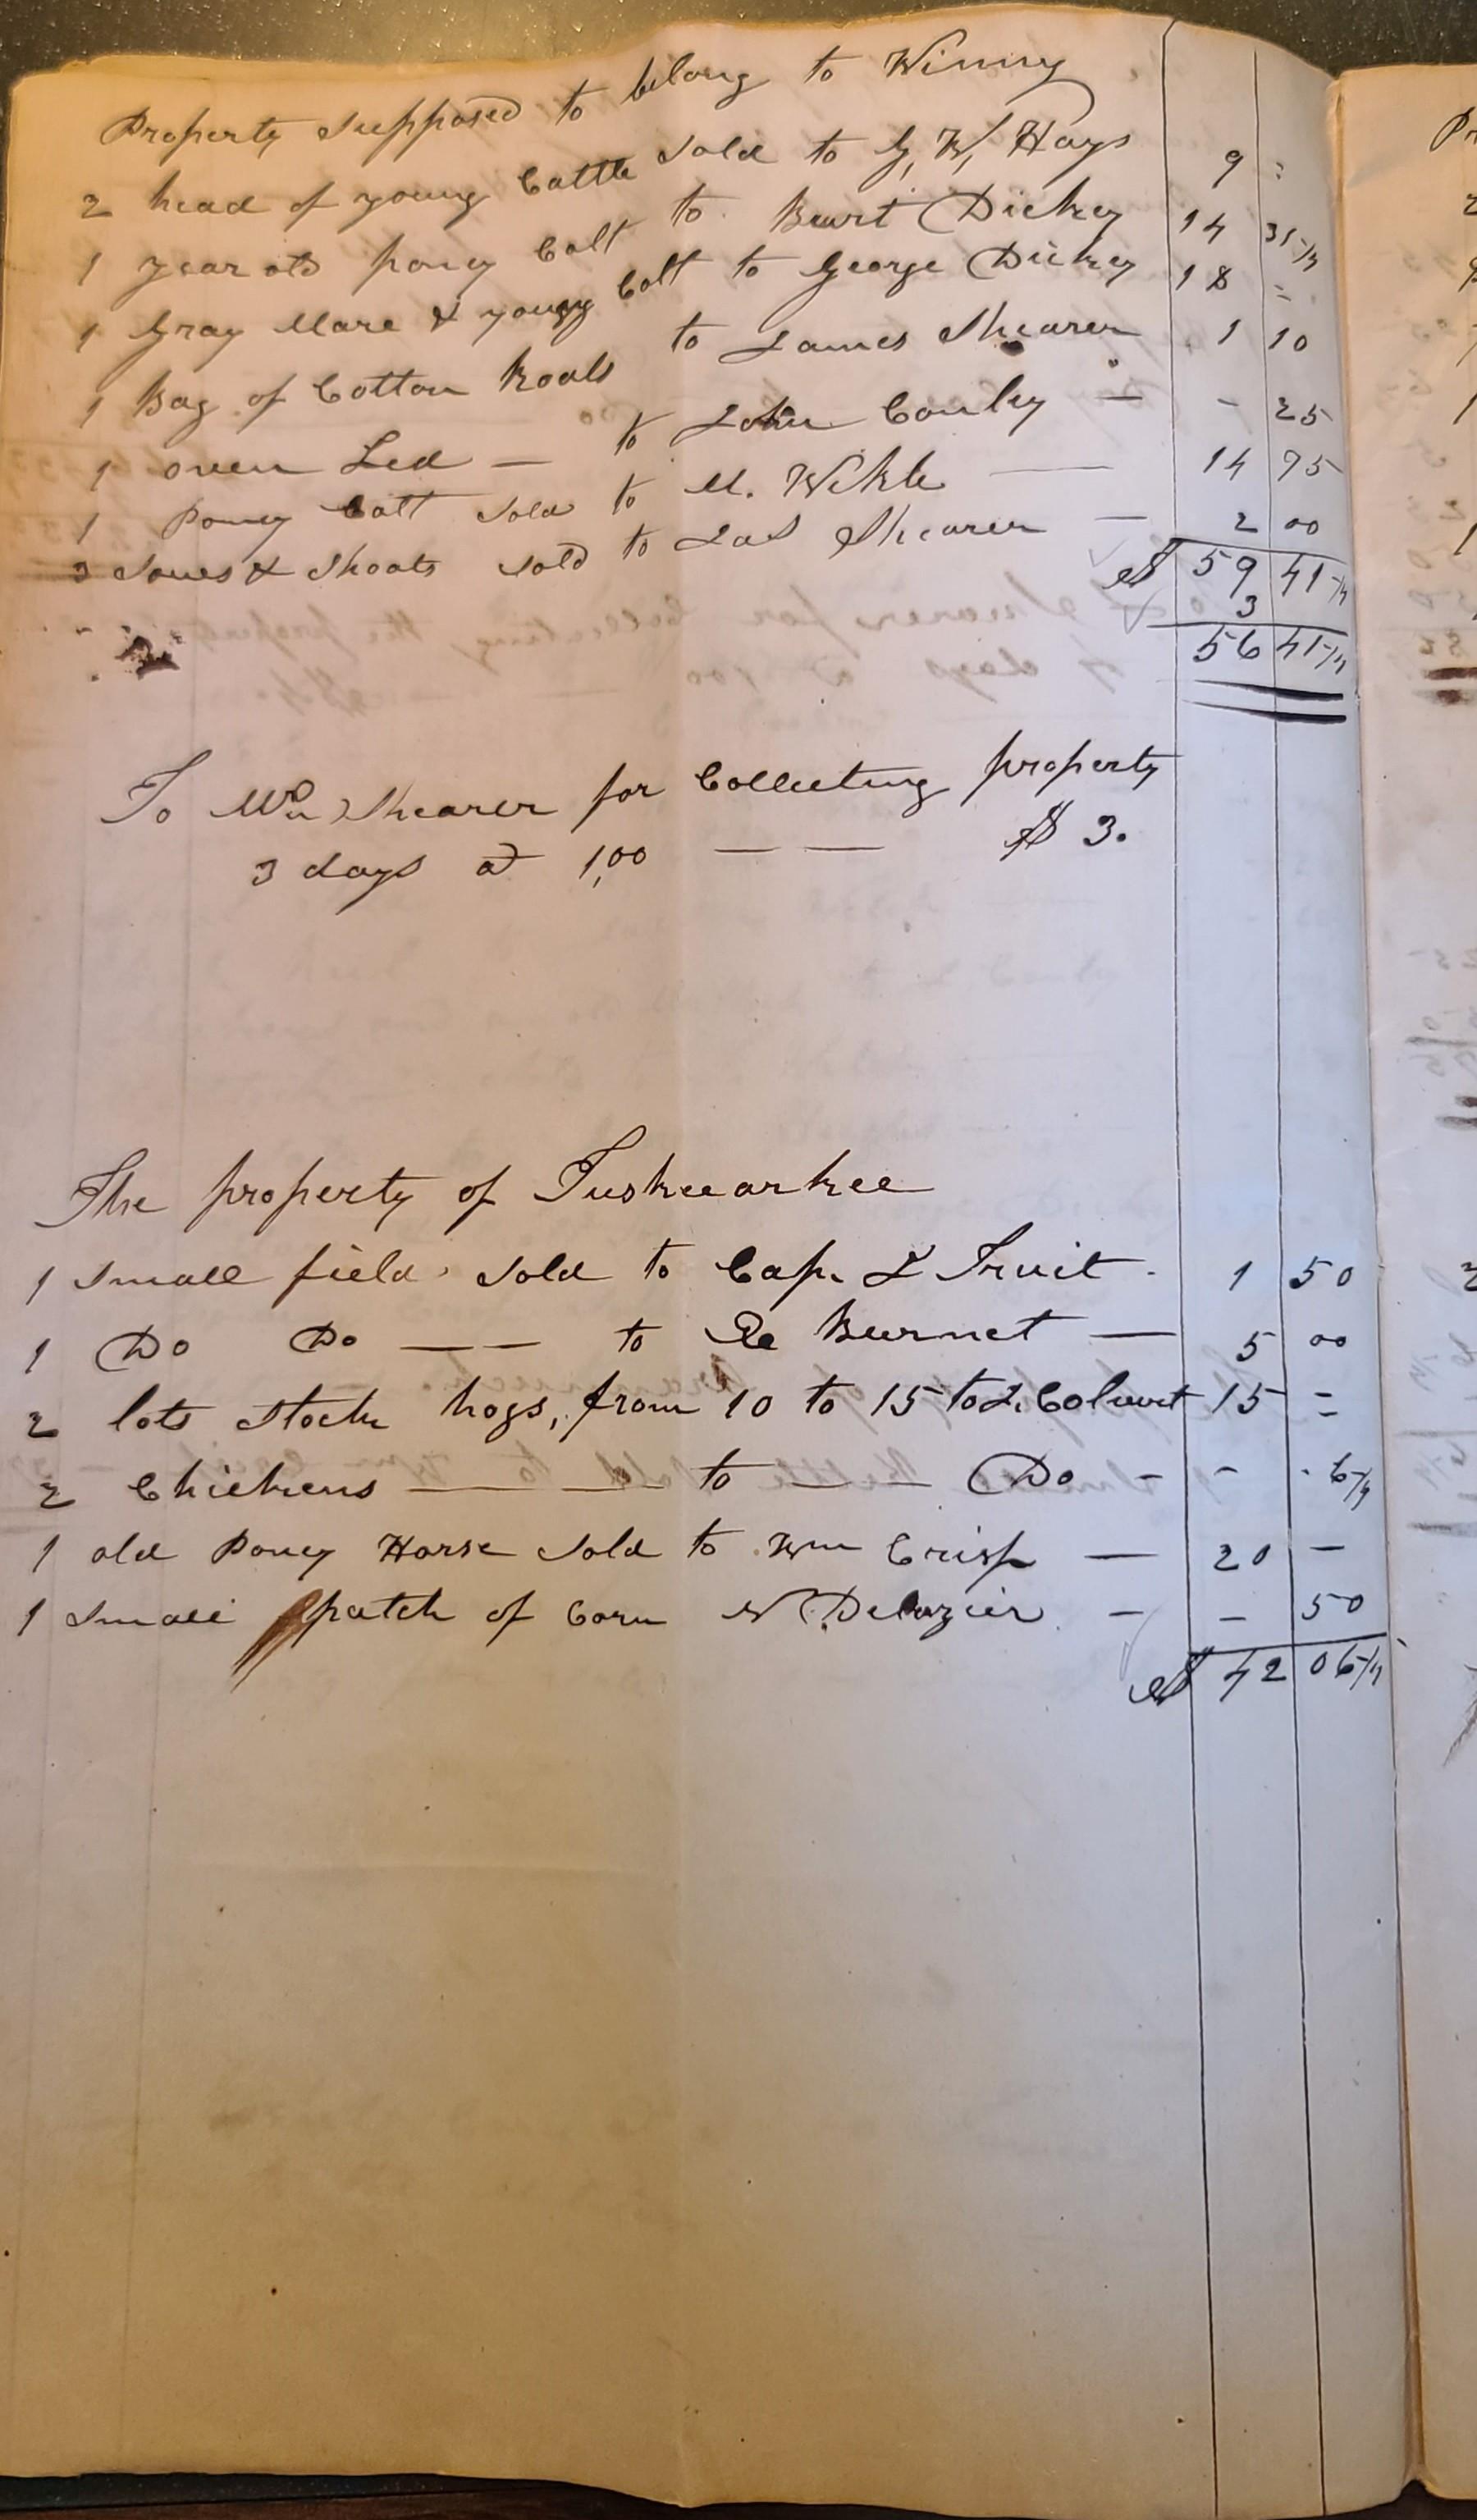 Property supposed to belong to Winny
2 head of young Cattle sold to G. W. Hays 9 =
1 year old poney Colt to Burt Dickey 14 31 1/4
1 Gray Mare & young Colt to George Dickey 18 =
1 Bag of Cotton to James Shearer 1 10
1 oven Led — to John Conley — - 25
1 Poney Colt sold to M. Wikle — 14 75
3 Sows & Shoats sold to Jas Shearer — 2 00
$ 59 41 1/4
3
56 41 1/4
To Wm Shearer for Collecting property
3 days at 1,00 — — $ 3.
The property of Tuskeearkee
1 Small field sold to Cap. L Truit - 1 50
1 Do Do — — to Burnet — 5 00
2 lots stock hogs, from 10 to 15 to J. Colvert 15 =
2 Chickens — — to — Do - - 6 1/4
1 old Poney Horse sold to Wm Crisp — 20 —
1 Small patch of Corn N Delozier — — 50
$ 42 06 1/4